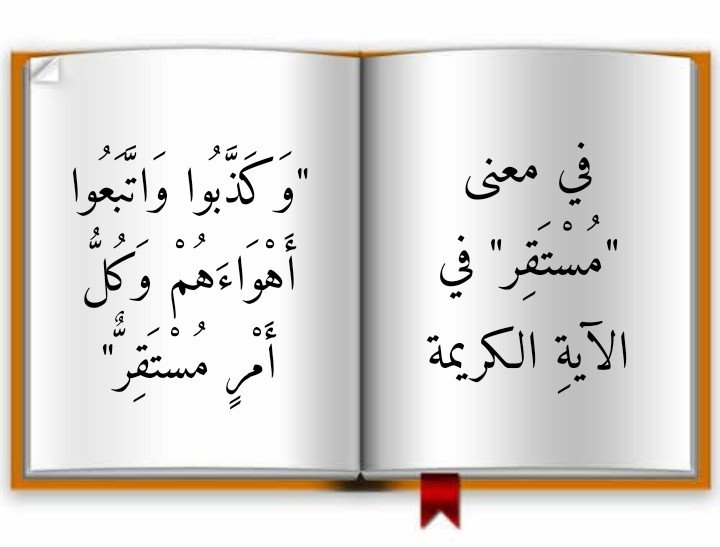 في معنى
"مُسْتَقِر" في
الآيةِ الكريمة
"وَكَذَّبُوا وَاتَّبَعُوا
أَهْوَاءَهُمْ وَكُلُّ
أَمْرٍ مُسْتَقِرٌّ"